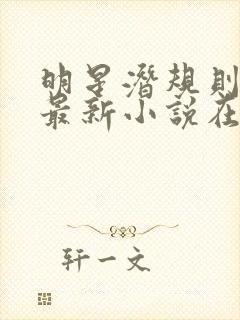 明星潜规则
最新小说在
轩一文